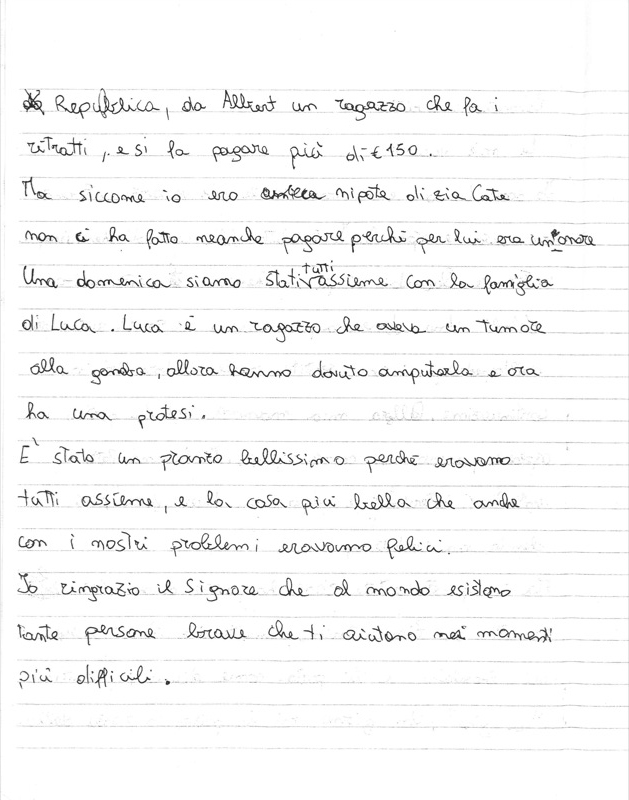 Repubblica, da Albert un ragazzo che fa i
ritratti, e si fa pagare più di € 150.
Ma siccome io ero nipote di zia Cate
non ci ha fatto neanche pagare perché per lui era un'onore
Una domenica siamo stati tutti assieme con la famiglia
di Luca. Luca è un ragazzo che aveva un tumore
alla gamba, allora hanno dovuto amputarla e ora
ha una protesi.
E' stato un pranzo bellissimo perché eravamo
tutti assieme, e la cosa più bella che anche
con i nostri problemi eravamo felici.
Io ringrazio il Signore che al mondo esistono
tante persone brave che ti aiutano nei momenti
più difficili.